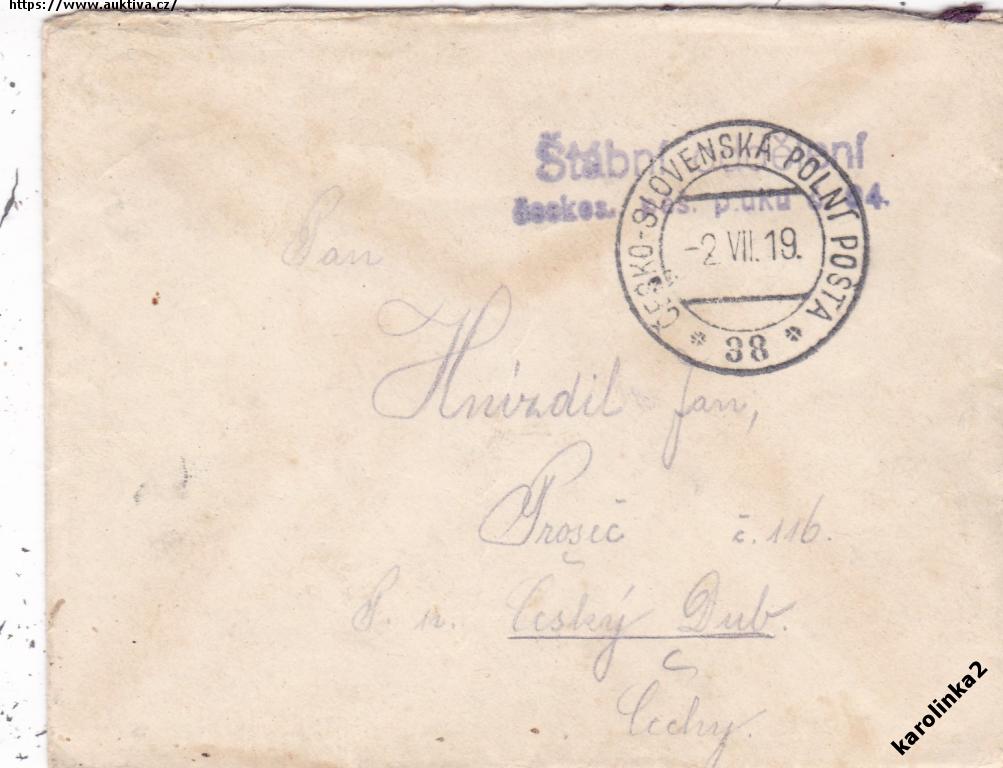 https://www.auktiva.cz/
Štábní
českos. p.uku 34.
ČESKO-SLOVENSKÁ POLNÍ POŠTA
-2.VII.19.
* 38 *
Pan
Hnízdil Jan,
Prosič č. 116.
P. n. Český Dub.
Čechy.
karolinka2